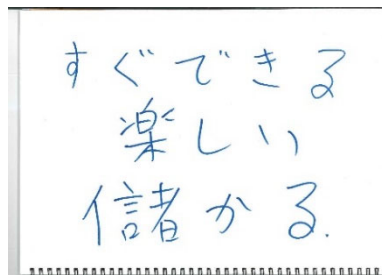 すぐできる
楽しい
信者かる.